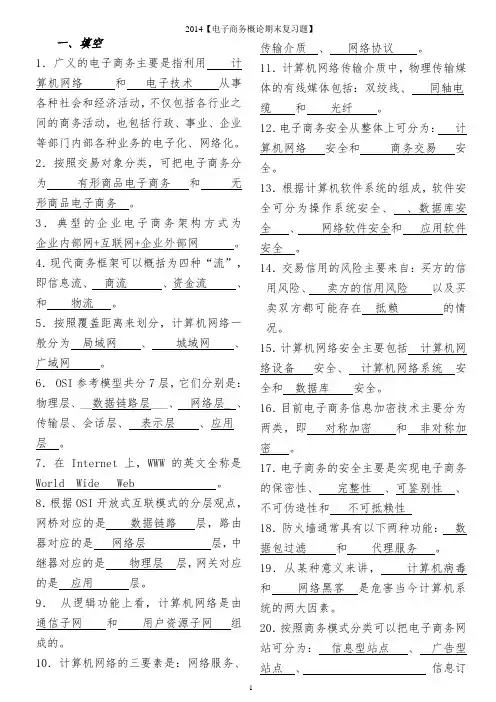 2014【电子商务概论期末复习题】
一、填空
1．广义的电子商务主要是指利用 计
算机网络 和 电子技术 从事
各种社会和经济活动,不仅包括各行业之
间的商务活动，也包括行政、事业、企业
等部门内部各种业务的电子化、网络化。
2．按照交易对象分类，可把电子商务分
为 有形商品电子商务 和 无
形商品电子商务 。
3．典型的企业电子商务架构方式为
企业内部网+互联网+企业外部网 。
4.现代商务框架可以概括为四种“流”，
即信息流、 商流 、资金流 、
和 物流 。
5．按照覆盖距离来划分，计算机网络一
般分为 局域网 、 城域网 、
广域网 。
6． OSI参考模型共分7层,它们分别是：
物理层、 数据链路层 、 网络层 、
传输层、会话层、 表示层 、应用
层 。
7．在Internet上，WWW的英文全称是
World Wide Web 。
8.根据OSI开放式互联模式的分层观点,
网桥对应的是 数据链路 层，路由
器对应的是 网络层 层，中
继器对应的是 物理层 层,网关对应
的是 应用 层。
9． 从逻辑功能上看，计算机网络是由
通信子网 和 用户资源子网 组
成的。
10．计算机网络的三要素是：网络服务、
传输介质 、 网络协议 。
11．计算机网络传输介质中，物理传输媒
体的有线媒体包括：双绞线、 同轴电
缆 和 光纤 。
12.电子商务安全从整体上可分为： 计
算机网络 安全和 商务交易 安
全。
13．根据计算机软件系统的组成，软件安
全可分为操作系统安全、 、数据库安
全 、 网络软件安全和 应用软件
安全 。
14．交易信用的风险主要来自：买方的信
用风险、 卖方的信用风险 以及买
卖双方都可能存在 抵赖 的情
况。
15.计算机网络安全主要包括 计算机网
络设备 安全、 计算机网络系统 安
全和 数据库 安全。
16．目前电子商务信息加密技术主要分为
两类，即 对称加密 和 非对称加
密 。
17．电子商务的安全主要是实现电子商务
的保密性、 完整性 、可鉴别性 、
不可伪造性和 不可抵赖性
18．防火墙通常具有以下两种功能： 数
据包过滤 和 代理服务 。
19．从某种意义来讲， 计算机病毒
和 网络黑客 是危害当今计算机系
统的两大因素。
20．按照商务模式分类可以把电子商务网
站可分为： 信息型站点 、 广告型
站点 、 信息订
1